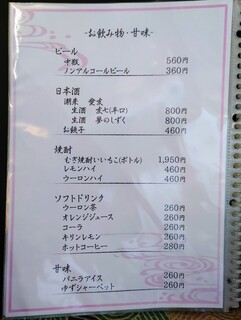 -お飲み物・甘味-
ビール
中瓶 560円
ノンアルコールビール 360円
日本酒
潮来 愛友
生酒 友七(辛口) 800円
生酒 夢のしずく 800円
お銚子 460円
焼酎
むぎ焼酎いいちこ(ボトル) 1,950円
レモンハイ 460円
ウーロンハイ 460円
ソフトドリンク
ウーロン茶 260円
オレンジジュース 260円
コーラ 260円
キリンレモン 260円
ホットコーヒー 280円
甘味
バニラアイス 260円
ゆずシャーベット 260円